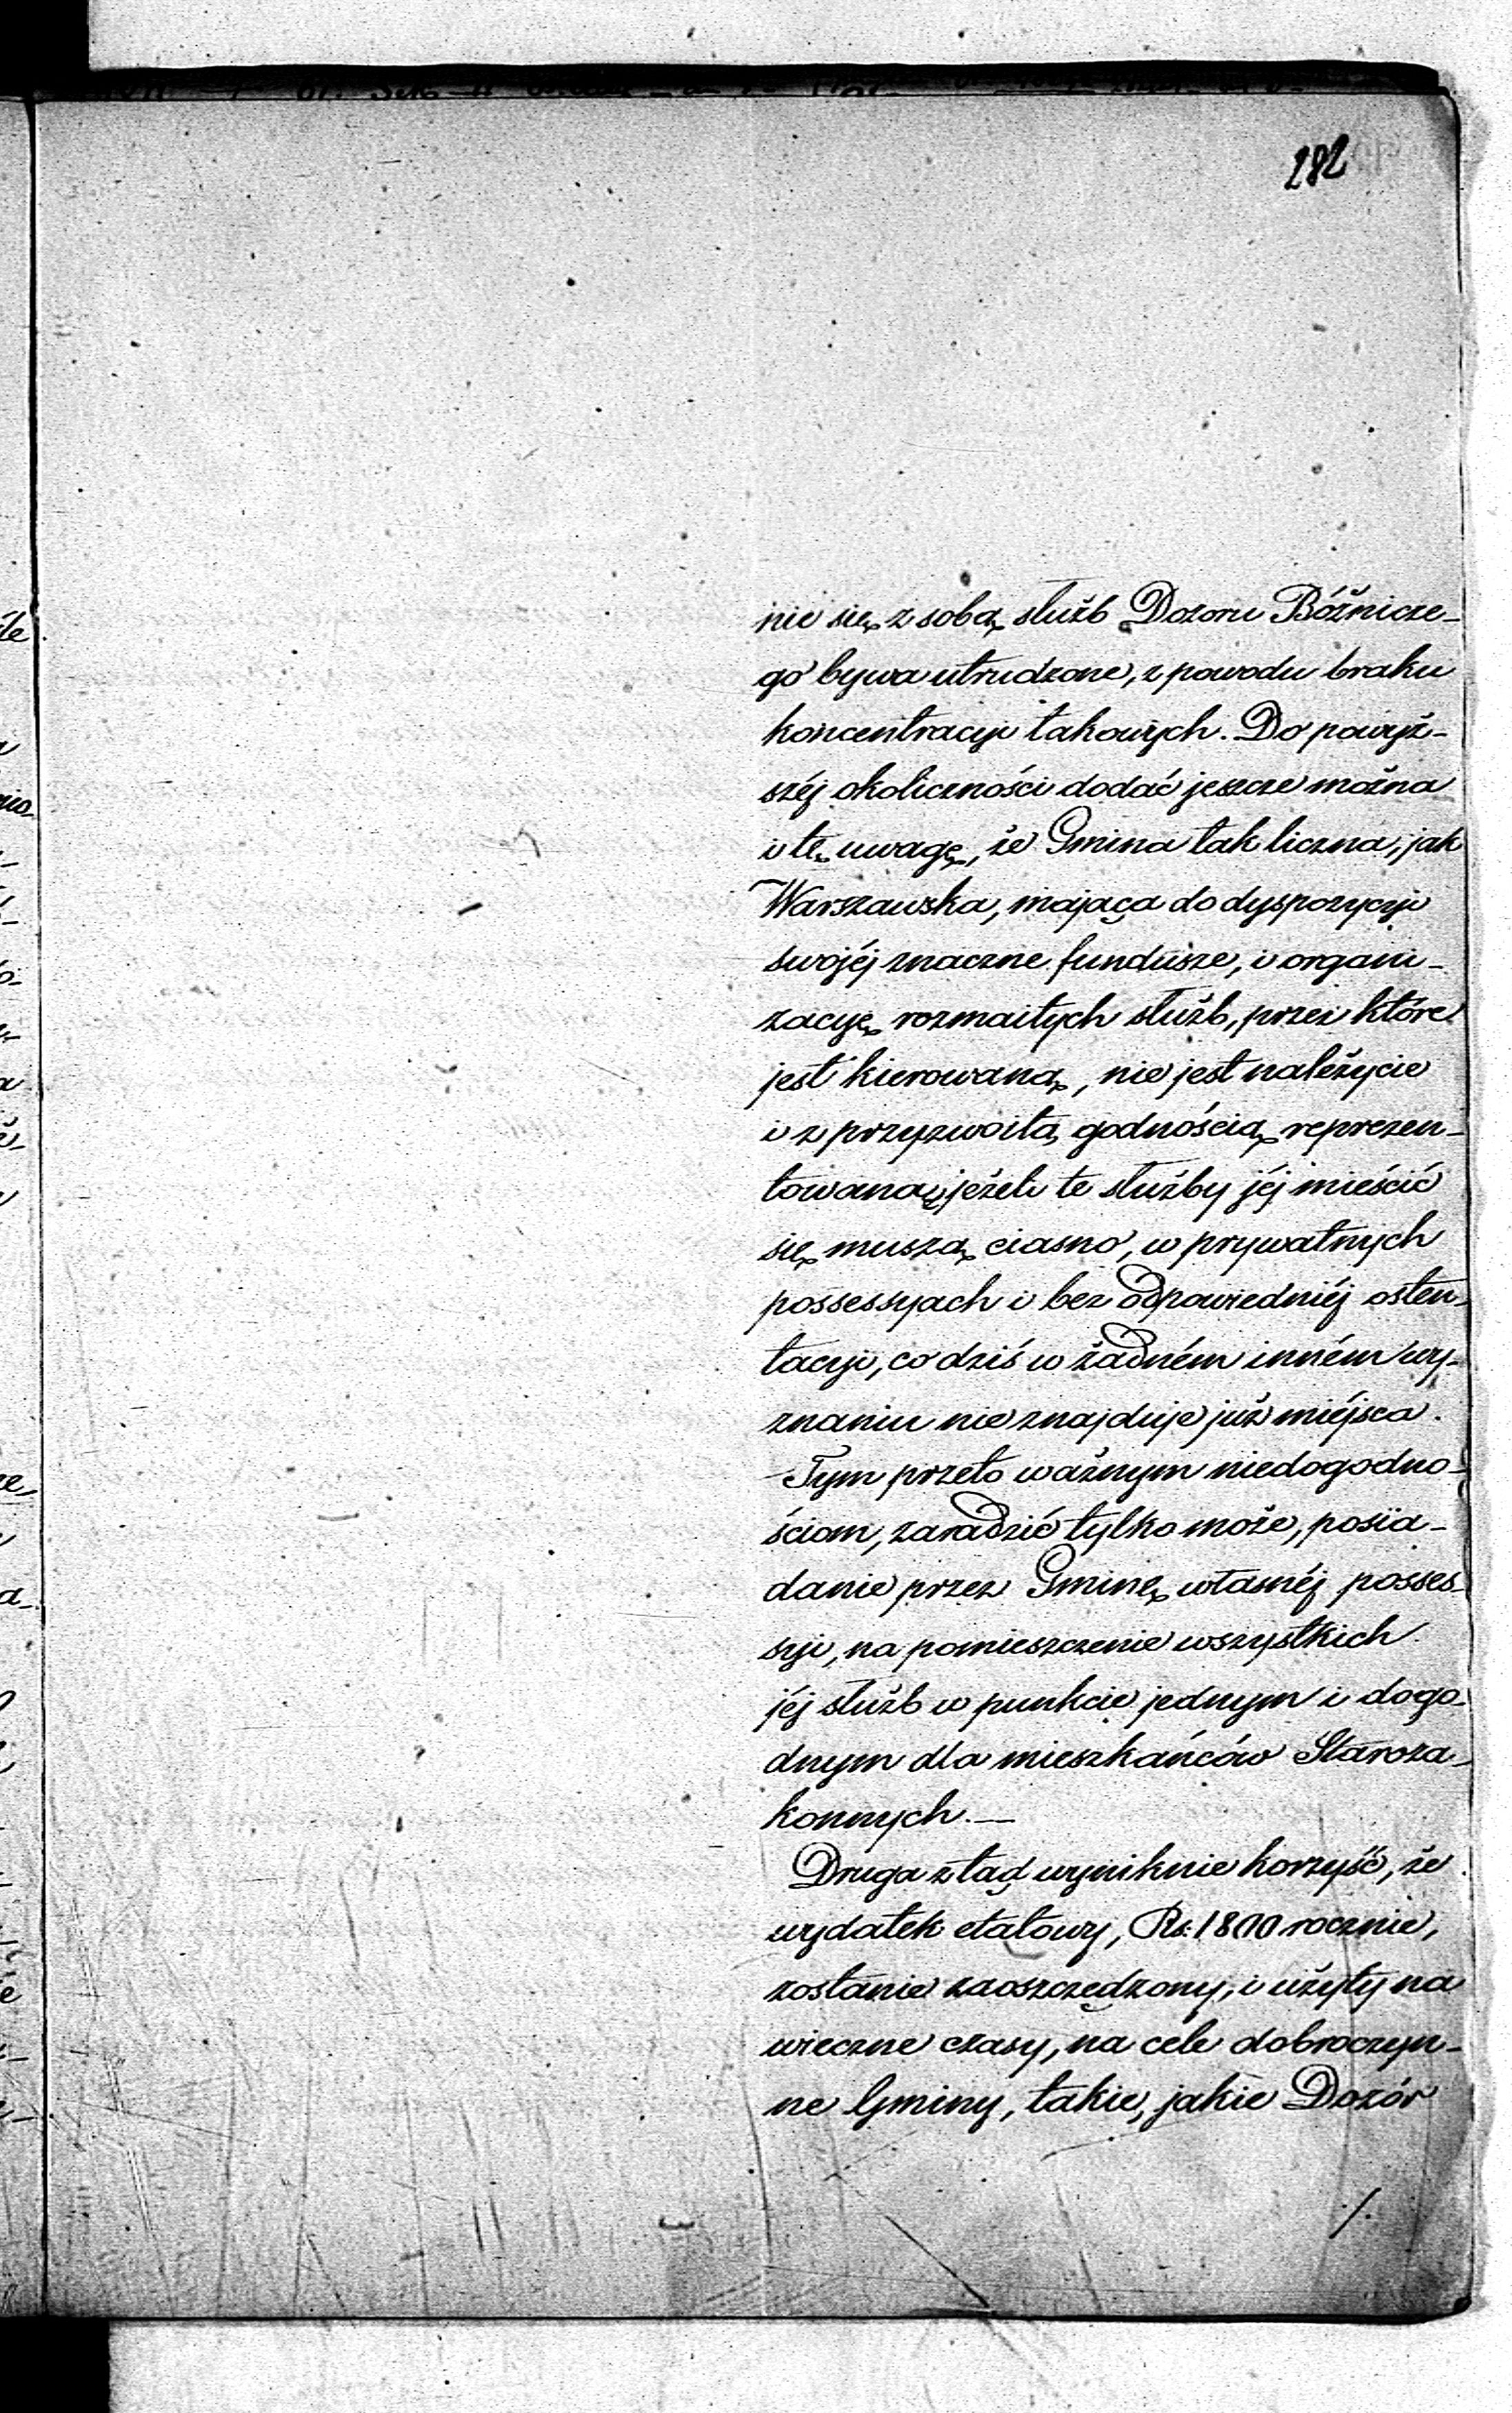 282
nie się z sobą służb Dozoru Bóźnicze-
go bywa utrudzone, z powodu braku
koncentracyi takowych. Do powyż-
széj okoliczności dodać jeszcze można
i tę uwagę, że Gmina tak liczna, jak
Warszawska, mająca do dyspozycyi
swojéj znaczne fundusze, i organi-
zacyę rozmaitych służb, przez które
jest kierowaną, nie jest należycie
i z przyzwoitą godnością reprezen-
towaną, jeżeli te służby jéj mieścić
się muszą ciasno, w prywatnych
possessyach i bez odpowiedniéj osten-
tacyi, co dziś w żadném inném wy-
znaniu nie znajduje już miéjsca.
Tym przeto ważnym niedogodno-
ściom, zaradzić tylko może, posia-
danie przez Gminę własnéj posses-
syi, na pomieszczenie wszystkich
jéj służb w punkcie jednym i dogo-
dnym dla mieszkańców Staroza-
konnych.—
Druga ztąd wyniknie korzyść, że
wydatek etatowy, Rs. 1800 rocznie,
zostanie zaoszczędzony, i użyty na
wieczne czasy, na cele dobroczyn-
ne Gminy, takie, jakie Dozór
/.